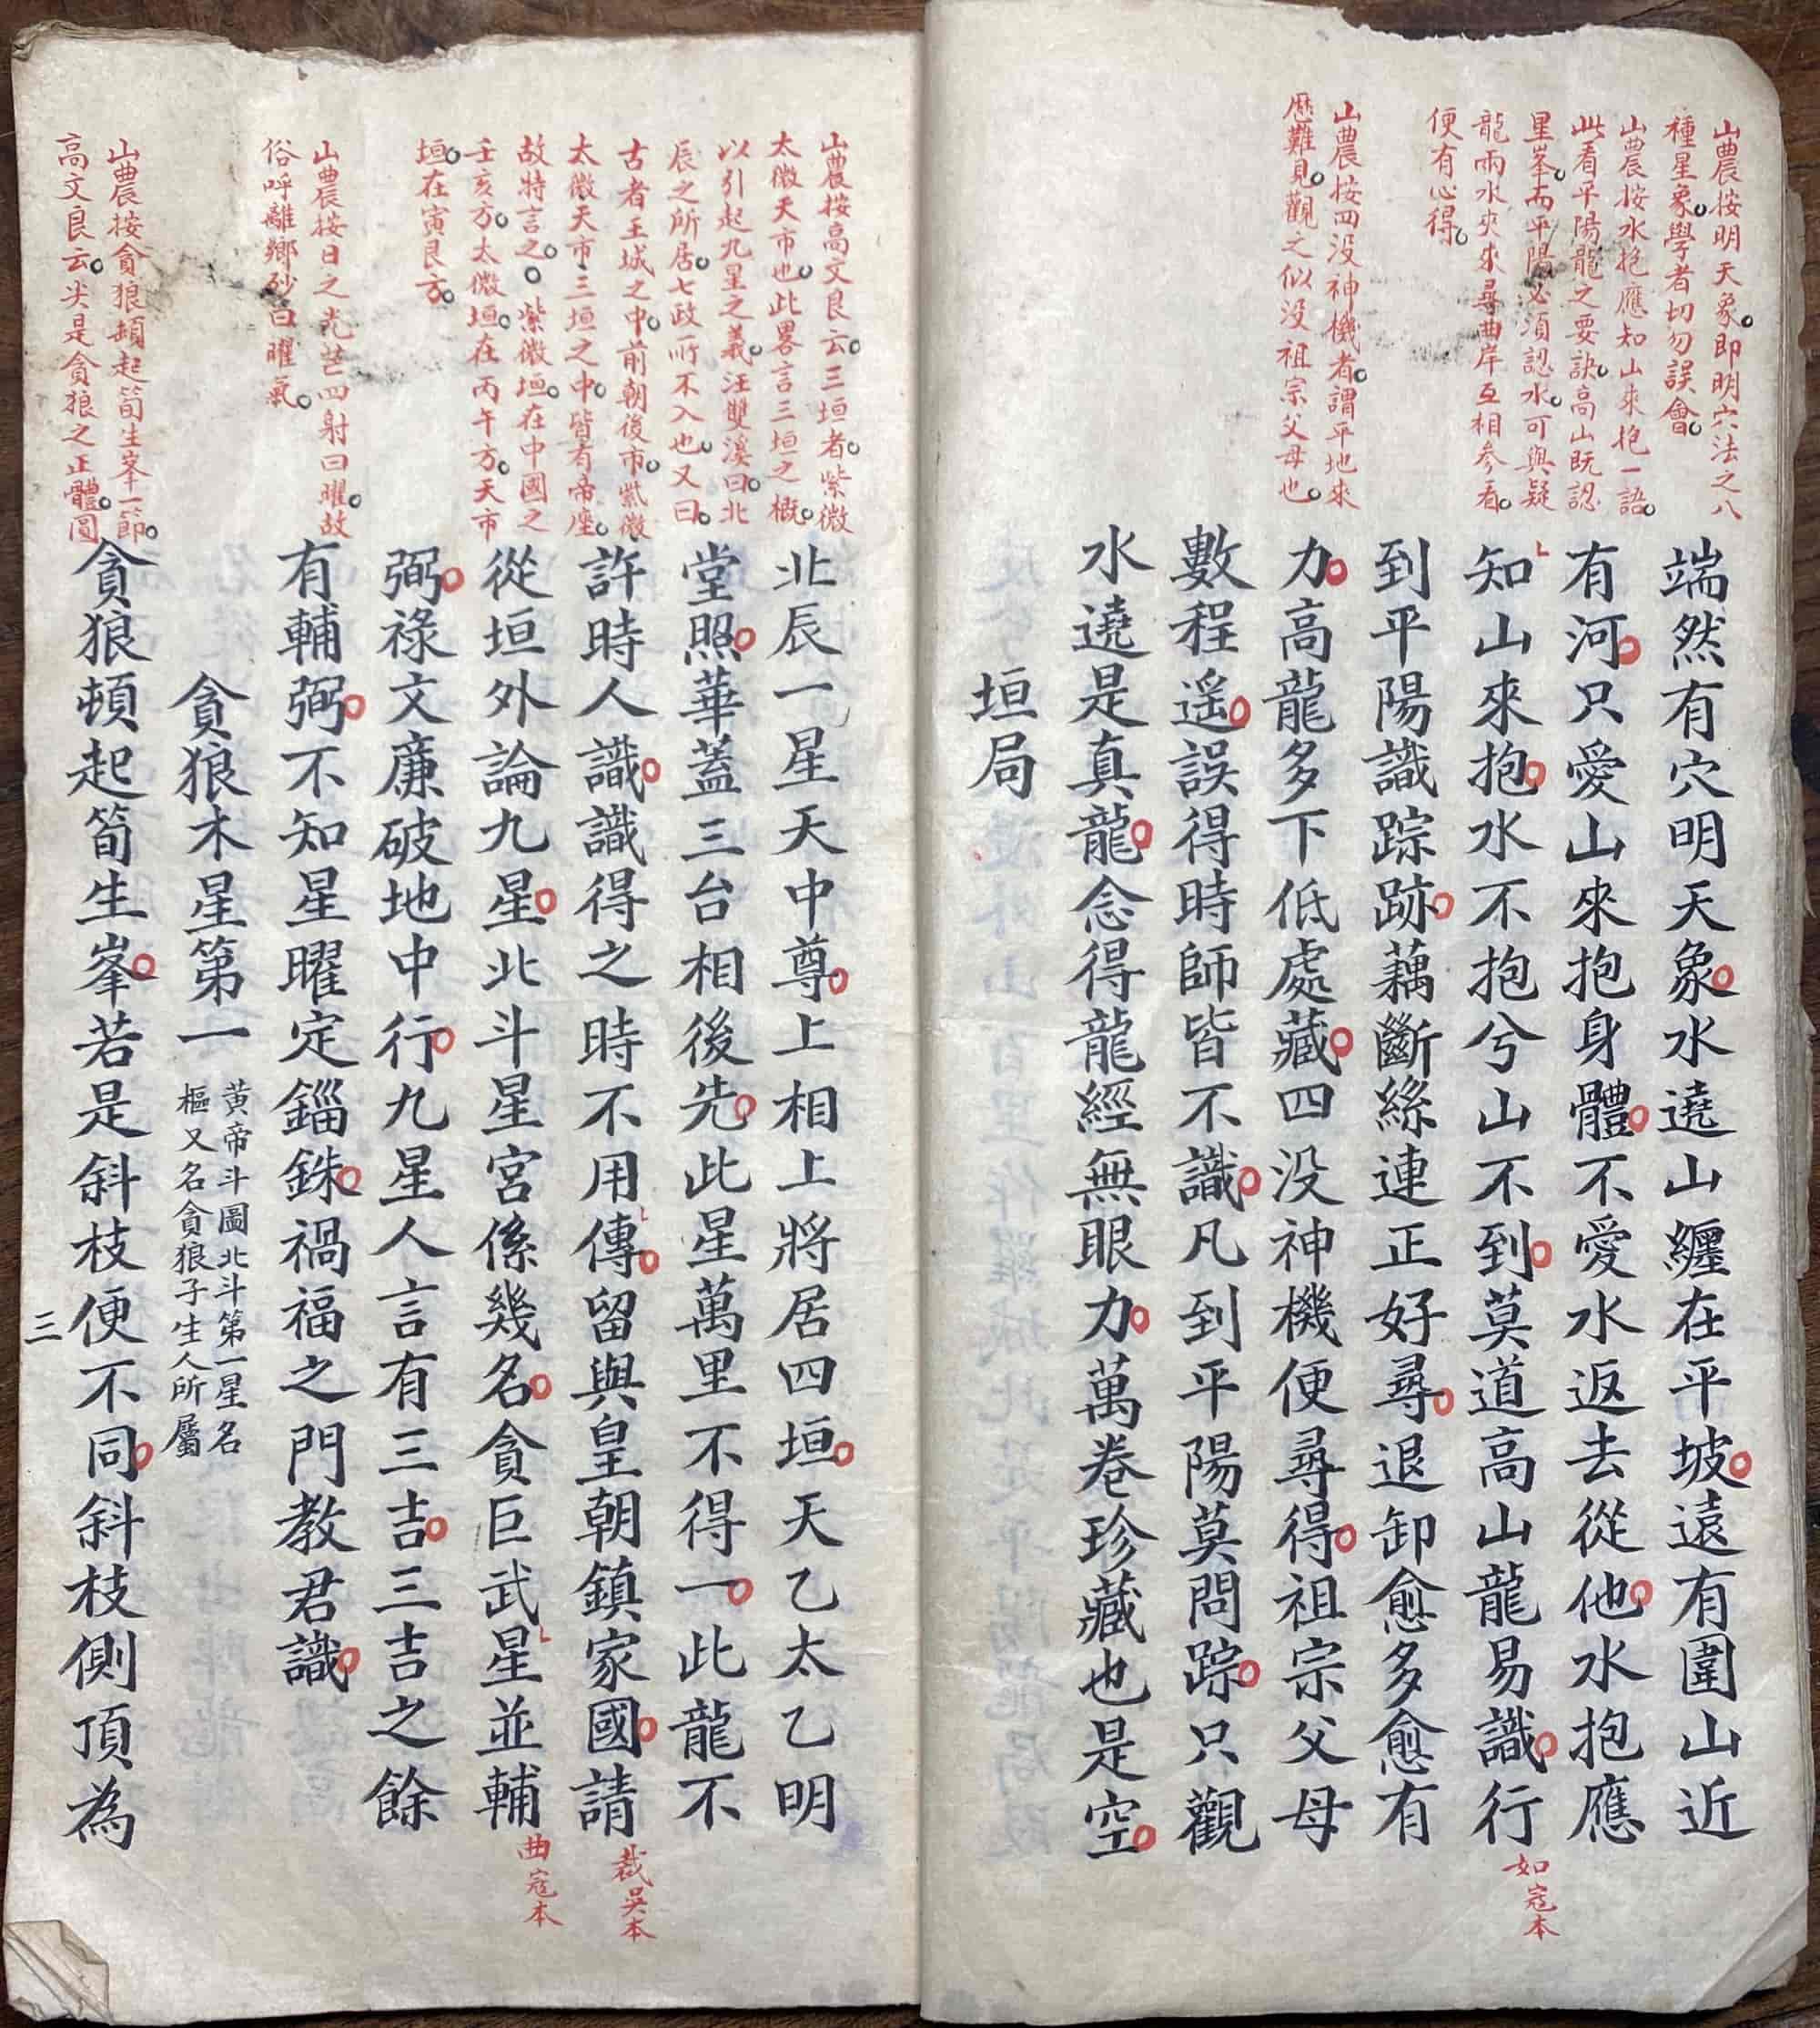 山農按明天象即明穴法之八
種星象學者切勿誤會
山農按水抱應知山來抱一語
此看平陽龍之要訣高山旣認
星峯而平陽必須認水可與疑
龍兩水夾來尋曲岸互相參看
便有心得
山農按四没神機者謂平地來
歷難見觀之似没祖宗父母也
端然有穴明天象水遶山纏在平坡遠有圍山近
有河只愛山來抱身體不愛水返去從他水抱應
知山來抱水不抱兮山不到莫道高山龍易識行
如寇本
到平陽識踪跡藕斷絲連正好尋退卸愈多愈有
力高龍多下低處藏四没神機便尋得祖宗父母
數程遥誤得時師皆不識凡到平陽莫問踪只觀
水遶是真龍念得龍經無眼力萬卷珍藏也是空
垣局
山農按高文良云三垣者紫微
太微天市也此畧言三垣之概
以引起九星之義汪雙溪曰北
辰之所居七政所不入也又曰
古者王城之中前朝後市紫微
太微天市三垣之中皆有帝座
故特言之紫微垣在中國之
壬亥方太微垣在丙午方天市
垣在寅艮方
山農按日之光芒四射曰曜故
俗呼離鄉砂曰曜氣
山農按貪狼頓起筍生峯一節
高文良云尖是貪狼之正體圓
北辰一星天中尊上相上將居四垣天乙太乙明
堂照華蓋三台相後先此星萬里不得一此龍不
許時人識識得之時不用傳留與皇朝鎮家國請
裁吳本
從垣外論九星北斗星宮係幾名貪巨武星並輔
曲寇本
弼祿文廉破地中行九星人言有三吉三吉之餘
有輔弼不知星曜定錙銖禍福之門教君識
貪狼木星第一
黃帝斗圖北斗第一星名
樞又名貪狼子生人所屬
貪狼頓起筍生峯若是斜枝便不同斜枝側頂為
三